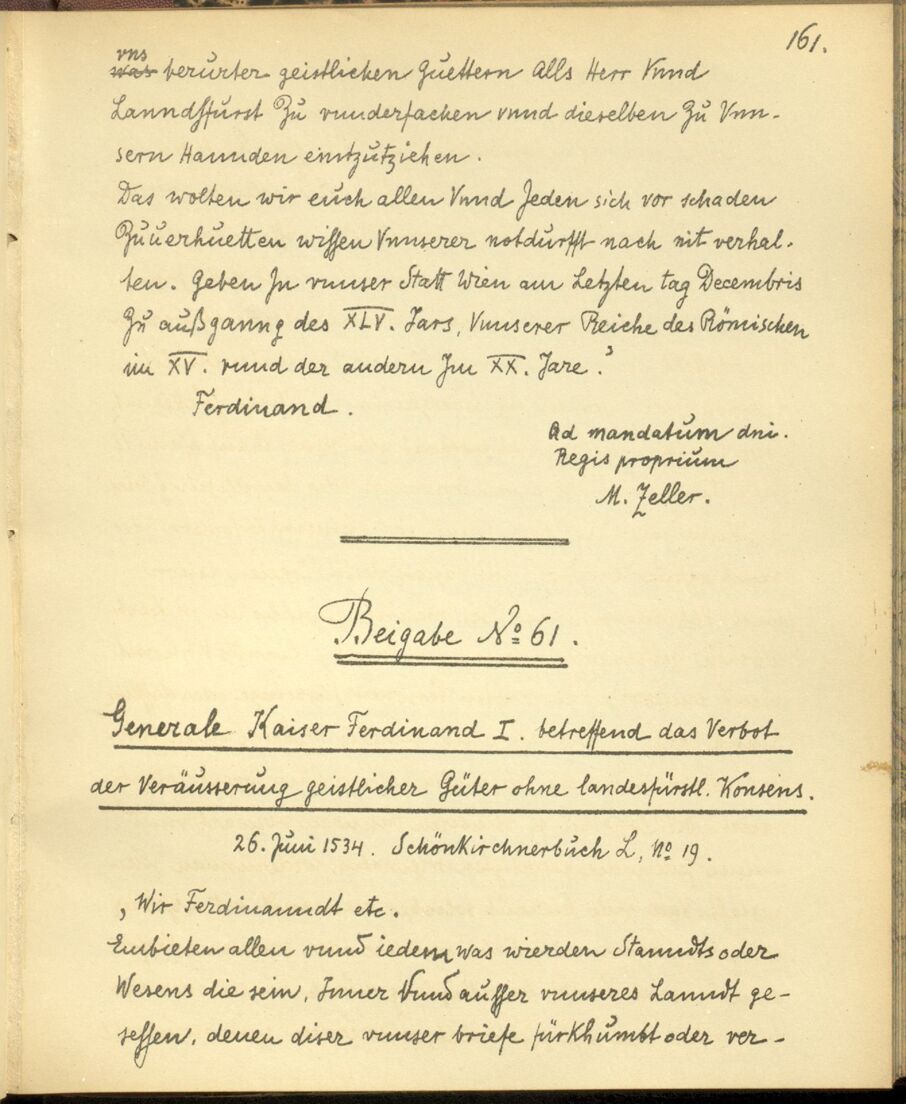 161.
vns
was berurter geistlichen Guettern Alls Herr Vnnd
Lanndsffurst Zu vnnderfachen vnnd dieselben Zu Vnn-
sern Hannden einntzutziehen.
Das wolten wir euch allen Vnnd Jeden sich vor schaden
Zuuerhuetten wissen Vnnserer notdurfft nach nit verhal-
ten. Geben In vnnser Statt Wien am Letzten tag Decembris
Zu außganng des XLV. Jars, Vnnserer Reiche des Römischen
im XV. vnnd der andern Im XX. Jare.
Ferdinand.
Ad mandatum dni.
Regis proprium
M. Zeller.
Beigabe No 61.
Generale Kaiser Ferdinand I. betreffend das Verbot
der Veräusserung geistlicher Güter ohne landesfürstl. Konsens.
26. Juni 1534. Schönkirchnerbuch L, No 19.
"Wir Ferdinanndt etc.
Embieten allen vnnd iedem, was wierden Stanndts oder
Wesens die sein, Inner Vnnd ausser vnnseres Lanndt ge-
sessen, denen diser vnnser briefe fürkhumbt oder ver-